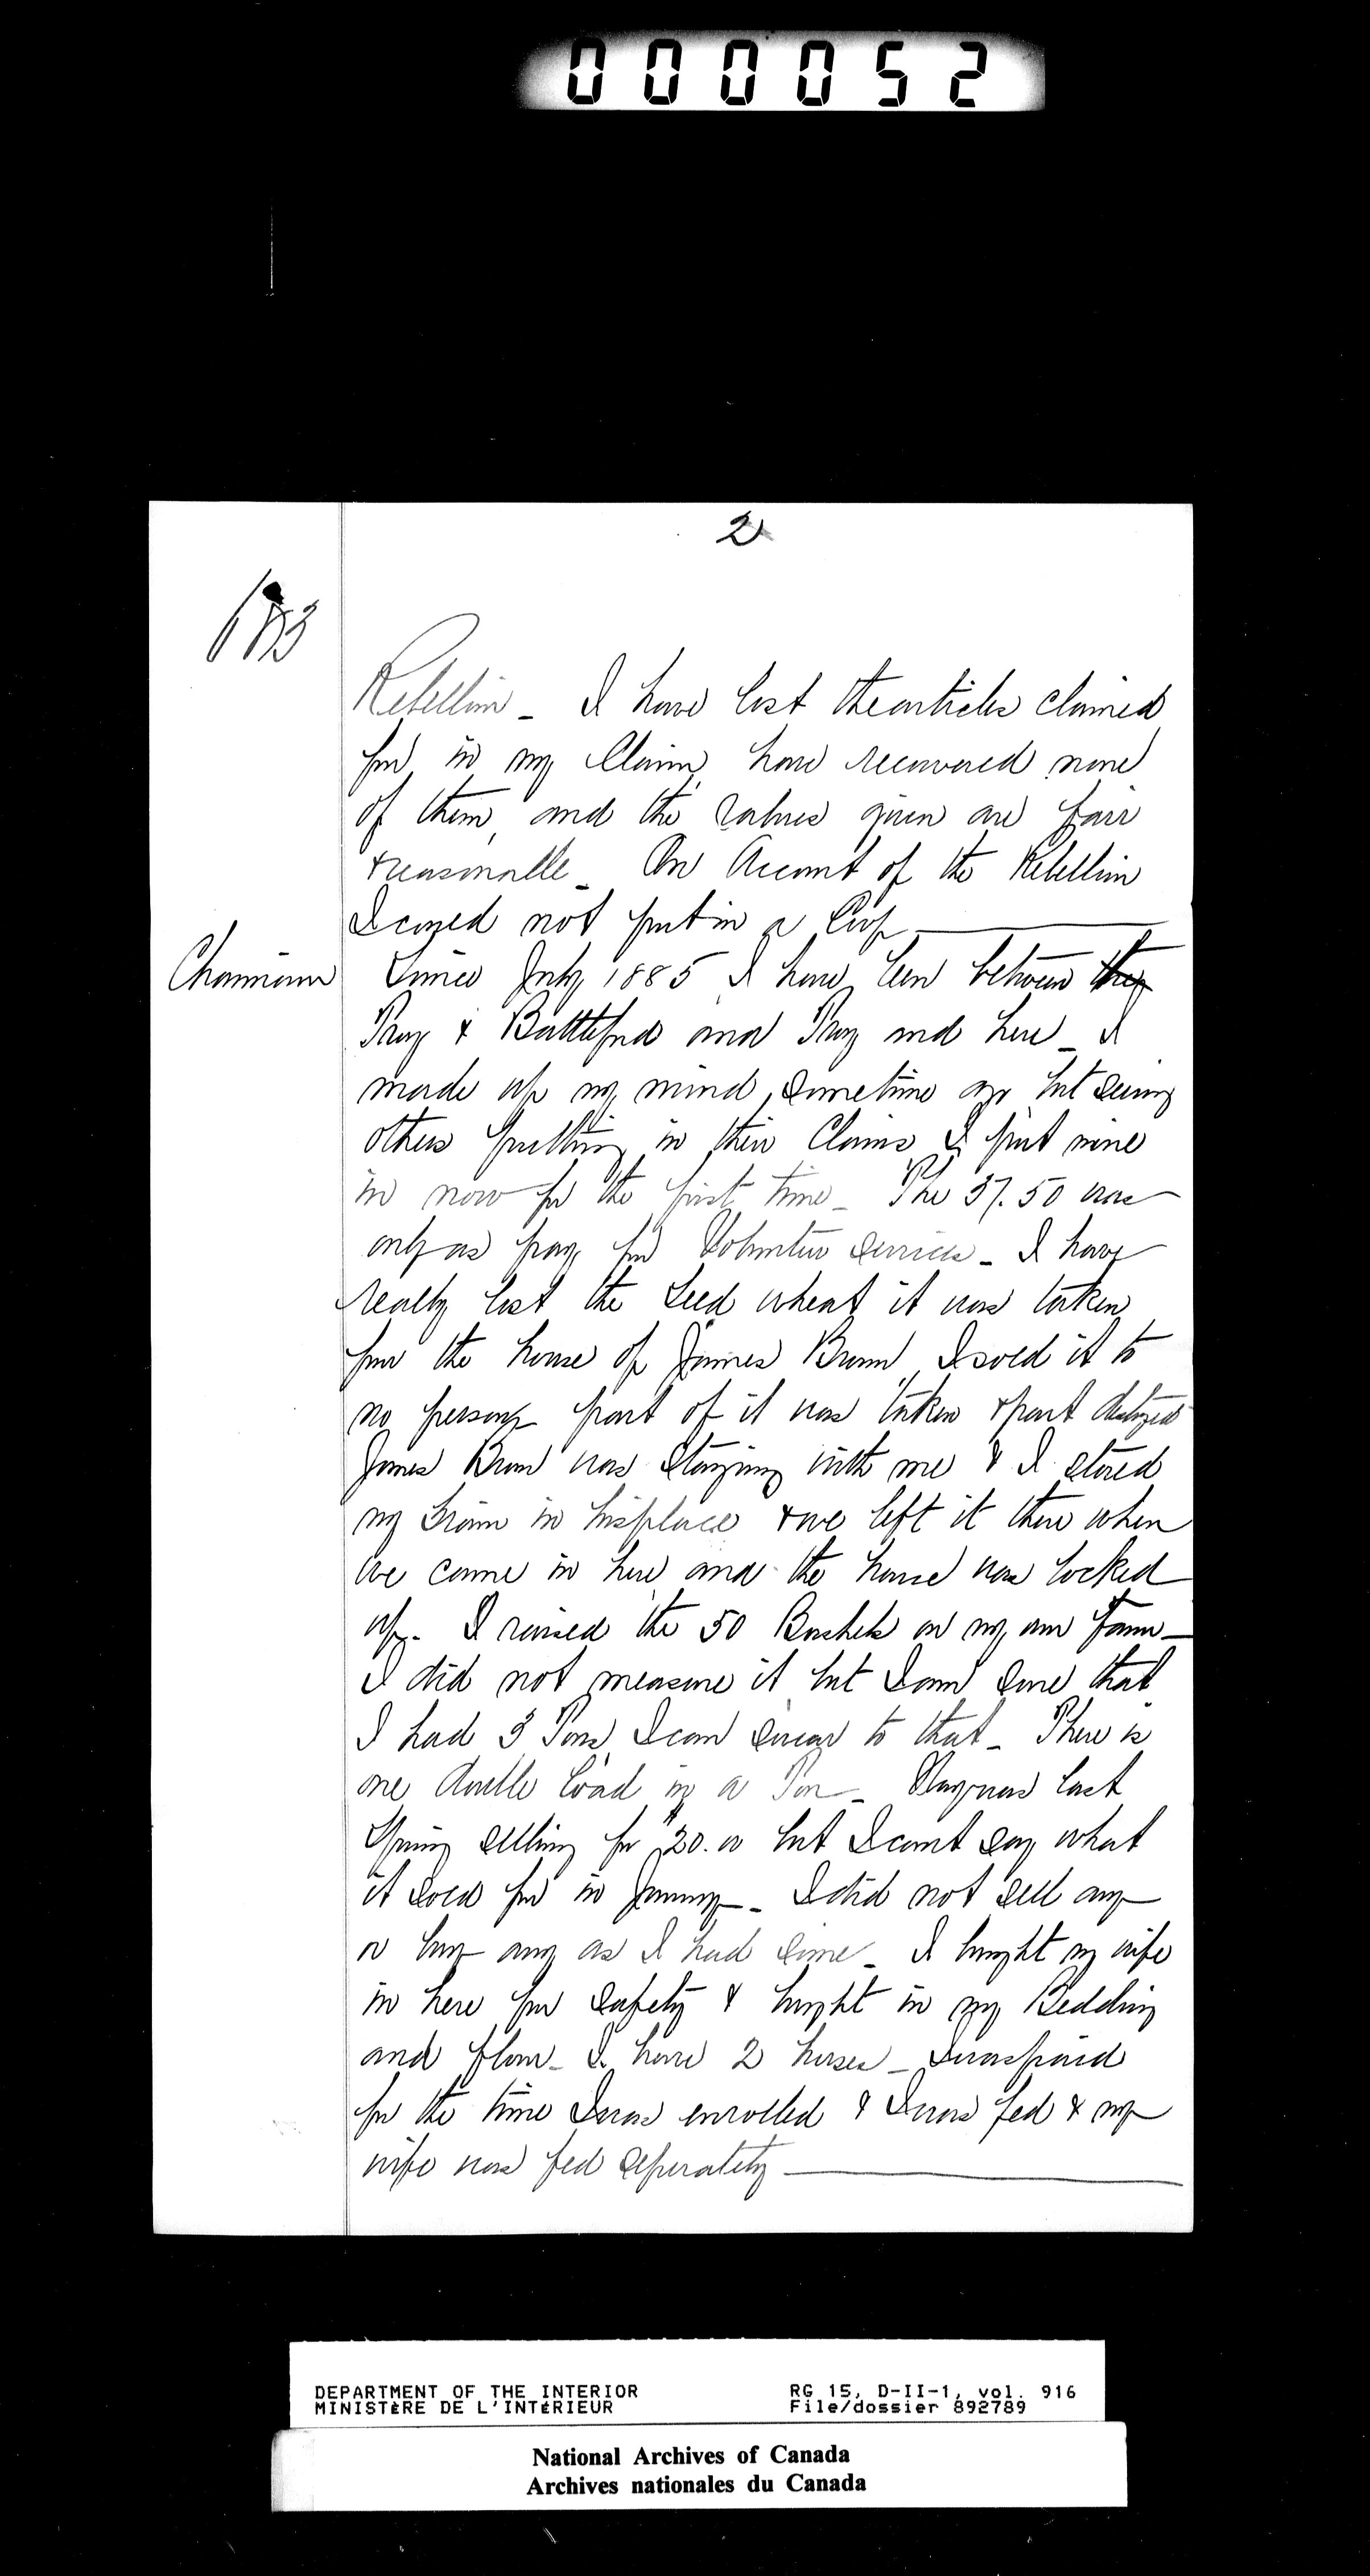 000052
2
Rebellion - I have lost the articles claimed
for in my Claim, have recovered none
of them, and the values given are fair
& reasonable - On Account of the Rebellion
I could not put in a Crop
Chairman
Since July 1885 I have been between
& Battleford and and here - I
made up my mind, sometime ago but seeing
others putting in their Claims I put mine
in now for the first time - The 37.50 was
only as pay for Volunteer services - I have
really lost the Seed wheat it was taken
from the house of James Brown, I sold it to
no person, part of it was taken & part destroyed
James Brown was staying with me & I stored
my Grain in his place & we left it there when
we came in here and the house was locked
up. I raised the 50 Bushels on my own farm -
I did not measure it but I am sure that
I had 3 Tons I can swear to that - There is
one double load in a Ton - Hay was last
Spring selling for $20.00 but I cant say what
it sold for in January - I did not sell any
or buy any as I had some - I brought my wife
in here for safety & brought in my Bedding
and flour - I have 2 horses - I was paid
for the time I was enrolled & I was fed & my
wife was fed seperately
DEPARTMENT OF THE INTERIOR RG 15, D-II-1, vol. 916
MINISTÈRE DE L'INTÉRIEUR File/dossier 892789
National Archives of Canada
Archives nationales du Canada